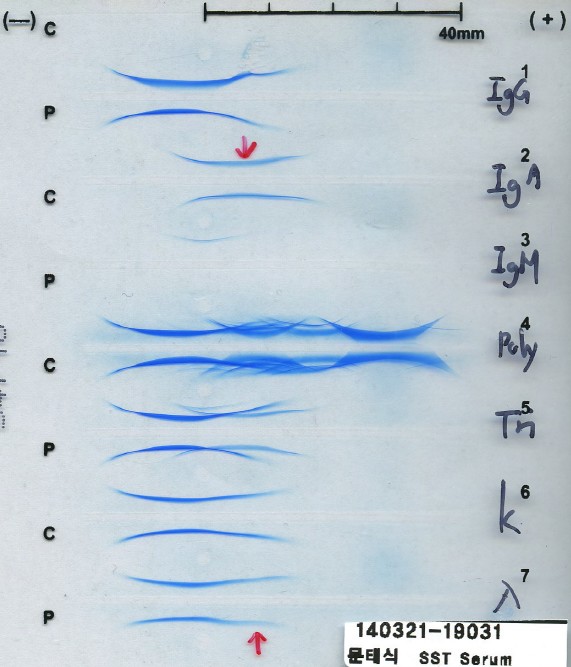 (—) C (+)
40mm
1
IgG
P
2
IgA
C
3
IgM
P
4
Poly
C
5
Tn
P
6
k
C
7
λ
P
140321-19031
문태식 SST Serum